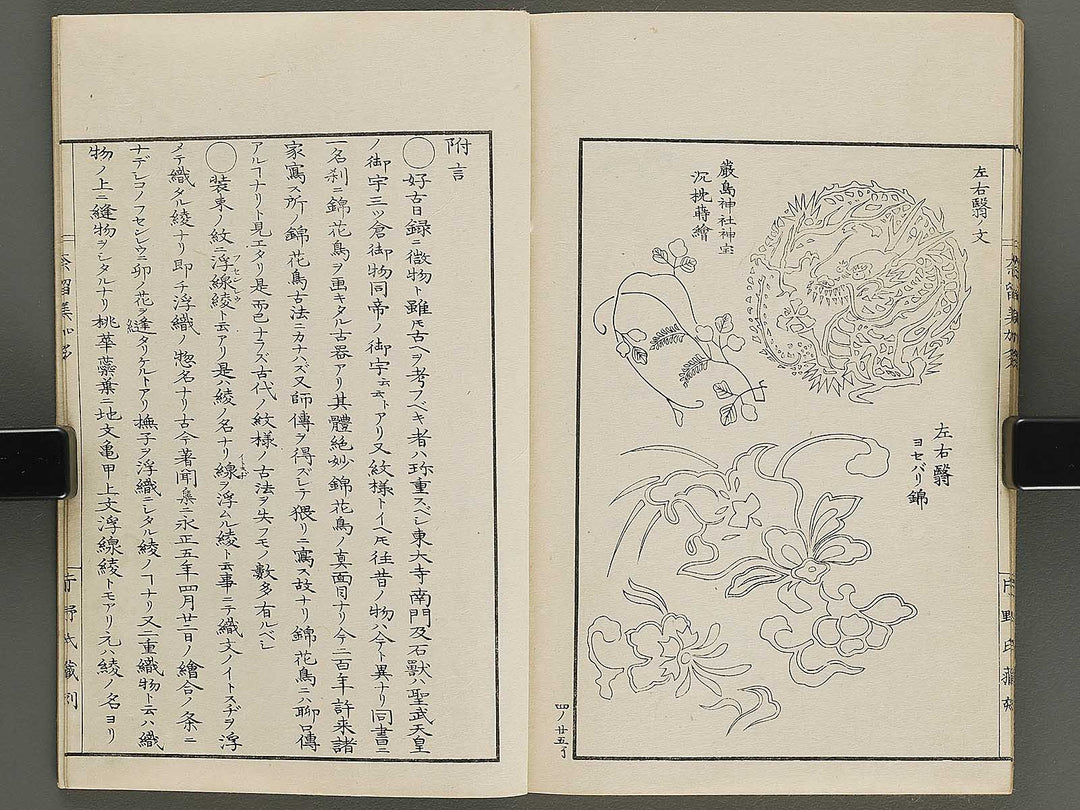 左右翳ノ文
嚴島神社神宝
沉枕蒔繪
左右翳
ヨセバリ錦
四ノ廿五丁
附言
◯好古日録ニ微物ト雖𪜈古ヘヲ考フベキ者ハ珎重スベシ東大寺南門及石獸ハ聖武天皇
ノ御宇三ツ倉御物同帝ノ御宇云云トアリ又紋様トイヘ𪜈徃昔ノ物ハ今ト異ナリ同書ニ
一名刹ニ錦花鳥ヲ画キタル古器アリ其體絶妙錦花鳥ノ真面目ナリ今二百年許来諸
家寫ス所ノ錦花鳥古法ニカナハズ又師傳ヲ得ズシテ猥リニ寫ス故ナリ錦花鳥ニハ聊口傳
アルヿナリト見エタリ是而已ナラズ古代ノ紋様ノ古法ヲ失フモノ數多有ルベシ
◯装束ノ紋ニ浮線綾ト云アリ是ハ綾ノ名ナリ線ヲ浮ムル綾ト云事ニテ織文ノイトスヂヲ浮
メテ織タル綾ナリ即チ浮織ノ惣名ナリ古今著聞集ニ永正五年四月廿二日ノ繪合ノ条ニ
ナデシコノフセンレウニ卯ノ花ヲ縫タリケルトアリ撫子ヲ浮織ニシタル綾ノヿナリ又二重織物ト云ハ織
物ノ上ニ縫物ヲシタルナリ桃華蘂葉ニ地文亀甲上文浮線綾トモアリ元ハ綾ノ名ヨリ